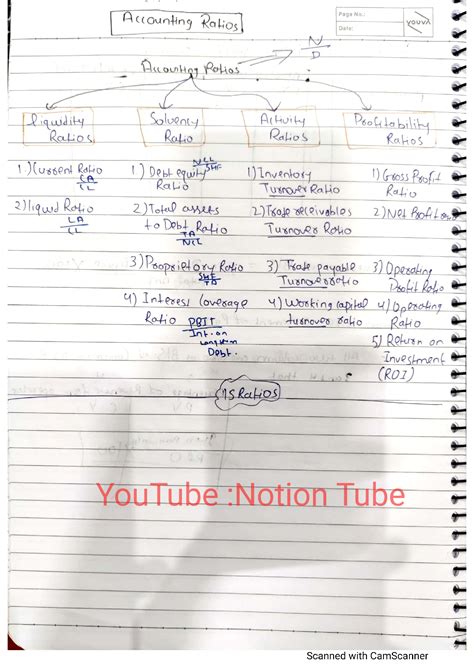 Accounting Ratios
Page No.:
Date:
YOUVA
N
D
Accounting Ratios
liquidity Ratios
Solvency Ratio
Activity Ratios
Profitability Ratios
1) Current Ratio
CA
CL
2) liquid Ratio
LA
CL
1) Debt equity Ratio
NCL
SHF
2) Total assets
to Debt Ratio
TA
NCL
3) Proprietory Ratio
SHF
TA
4) Interest Coverage
Ratio PBIT
Int. on
Long term
Debt.
1) Inventory
Turnover Ratio
2) Trade receivables
Turnover Ratio
3) Trade payable
Turnover ratio
4) Working capital
turnover ratio
1) Gross Profit
Ratio
2) Net Profit
3) Operating
Profit Ratio
4) Operating
Ratio
5) Return on
Investment
(ROI)
15 Ratios
YouTube :Notion Tube
Scanned with CamScanner